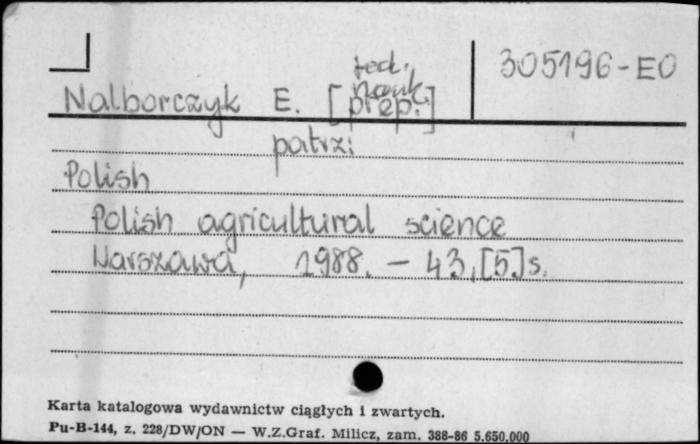 305196-EO
red. nauk.
Nalborczyk E. [prep.]
patrz:
Polish
Polish agricultural science
Warszawa, 1988. - 43, [5] s.
Karta katalogowa wydawnictw ciągłych i zwartych.
Pu-B-144, z. 228/DW/ON — W.Z.Graf. Milicz, zam. 388-86 5.650.000